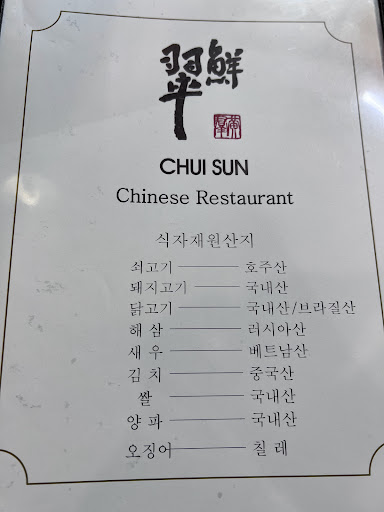 翠鮮
CHUI SUN
Chinese Restaurant
식자재원산지
쇠고기 호주산
돼지고기 국내산
닭고기 국내산/브라질산
해 삼 러시아산
새 우 베트남산
김 치 중국산
쌀 국내산
양 파 국내산
오징어 칠 레